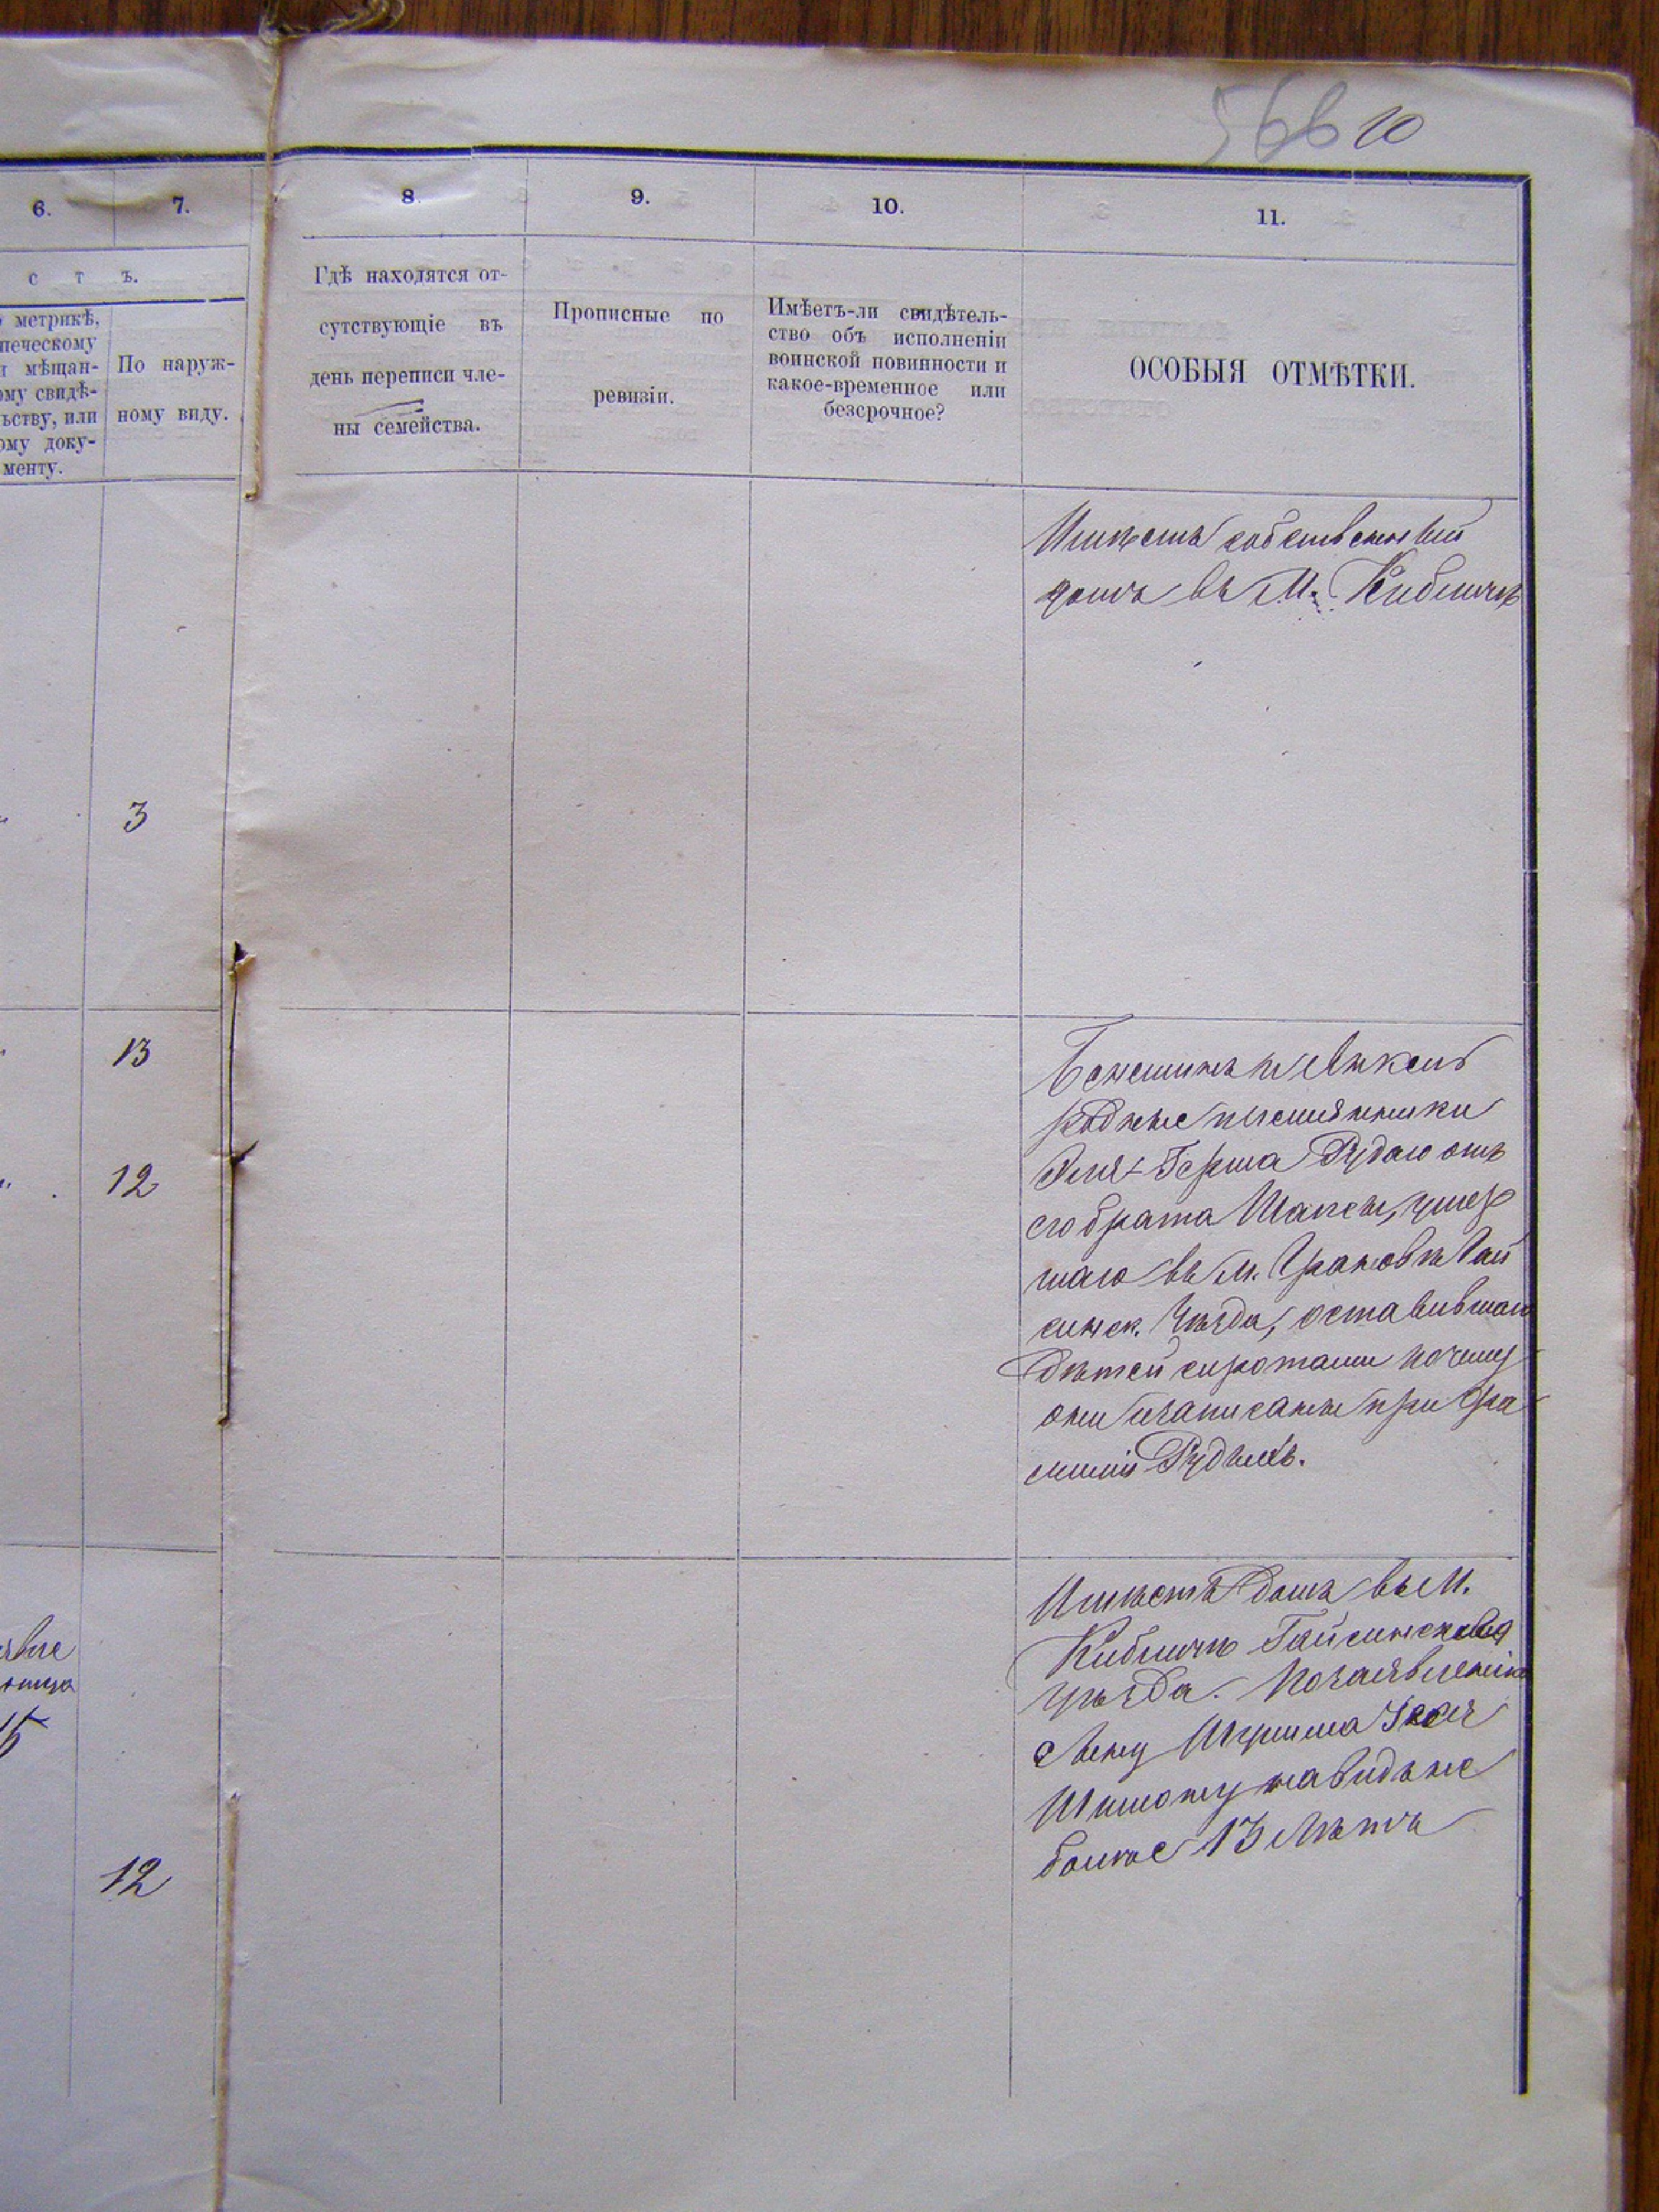 566 10
6.
7.
8
9.
10.
11.
с т ъ.
метрикѣ,
печескому
мѣщан-
ому свидѣ-
ьству, или
ому доку-
менту.
По наруж-
ному виду.
Гдѣ находятся от-
сутствующіе въ
день переписи чле-
ны семейства.
Прописные по
ревизіи.
Имѣетъ-ли свидѣтель-
ство объ исполненіи
воинской повинности и
какое-временное или
безсрочное?
ОСОБЫЯ ОТМѢТКИ.
Имѣетъ собственный
домъ въ М. Кибличѣ
3
13
12
родные племянники
Герша Рудаго отъ
его брата умер
шаго въ м. Грановкѣ Гай
синск. Уѣзда, оставившаго
дѣтей сиротами почему
они и записаны при фа
миліи Рудыхъ.
Имѣетъ домъ въ М.
Кибличѣ Гайсинскаго
уѣзда. По заявленію
сыну
на видъ не
болѣе 13 лѣтъ
15
12